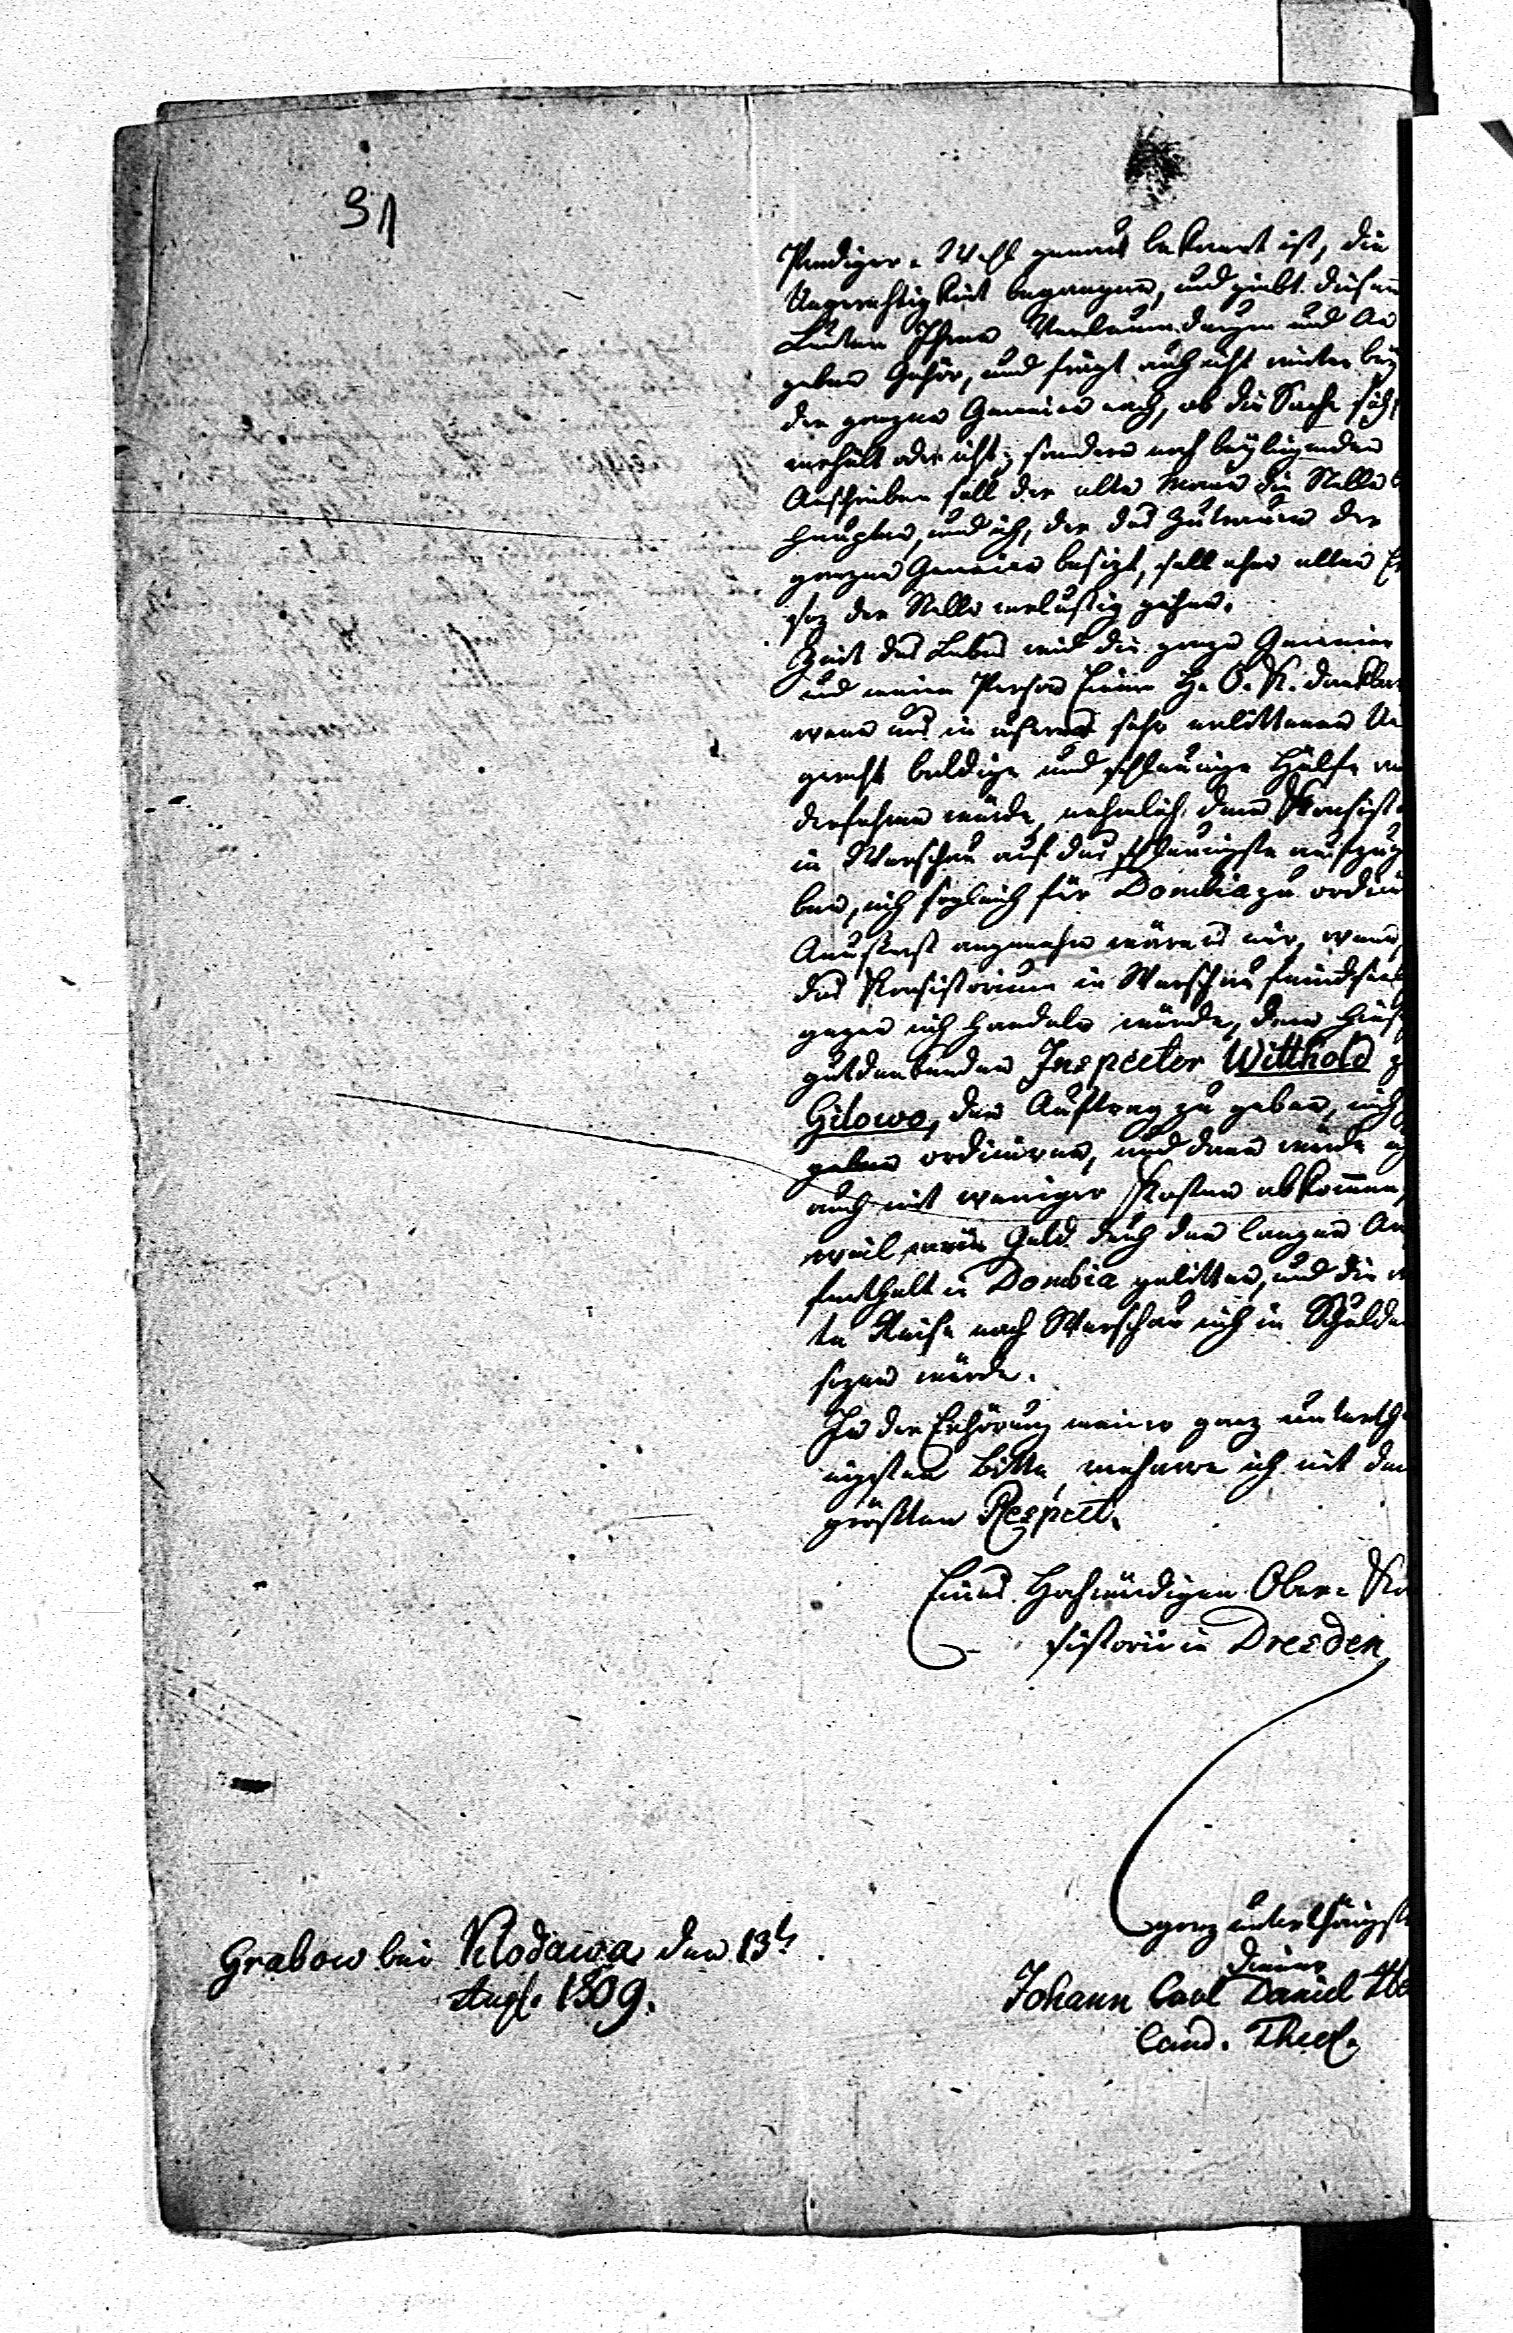 31
Prediger-Wahl genau bekannt ist, die
Ungerechtigkeit begangen, und giebt diesen
Leuten Ihren Verläumdungen und An
geben Gehör, und frägt auch nicht weiter bey
der ganzen Gemeine nach, ob die Sache sich
verhält oder nicht; sondern nach beyliegenden
Anschreiben soll der alte Mann die Stelle
haupten, und ich, der das Zutrauen der
ganzen Gemeine besizt, soll ohne allen Er
saz der Stelle verlustig gehen.
Zeit des Lebens wird die ganze Gemeine
und meine Person Einem H. O. K. dankbar
wenn uns in unserm sehr erlittenen Un
gerecht baldige und schleunige Hülfe wi
derfahren würde, nehmlich dem Konsist
in Warschau auf das schleunigste aufzuge
ben, mich sogleich für Dombia zu ordini
Aeußerst angenehm wäre es mir, wenn
das Konsistorium in Warschau feindseel
gegen mich handeln würde, dem hies
gutdenkenden Inspector Witthold z
Gilowo, den Auftrag zu geben, mich
ordiniren, und dann würde ich
auch mit weniger Kosten abkommen,
weil mein Geld durch den langen Au
fenthalt in Dombia gelitten, und die
te Reise nach Warschau mich in Schulde
sezen würde.
In der Erhörung meiner ganz unterth
nigsten Bitte, verharre ich mit dem
größten Respect.
Eines Hochwürdigen Ober-Ko
sistorii in Dresden
ganz unterthänigst
Diener
Johann Carl Daniel
Cand. Theol.
Grabow bei Klodawa den 13t
Aug. 1809.